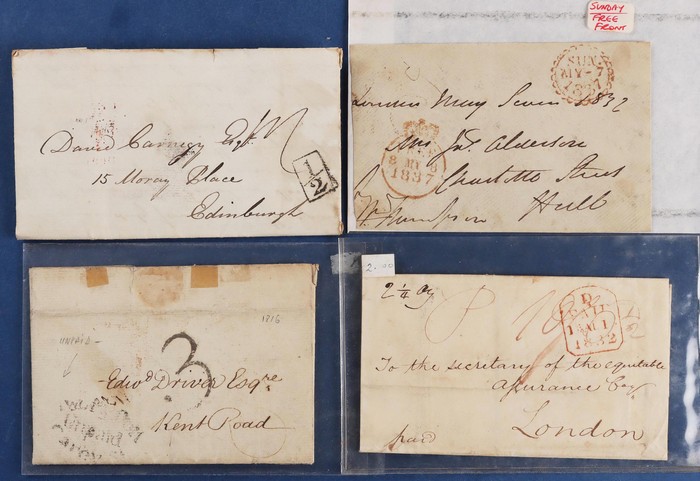 David Carnegy Esqr.
15 Moray Place
Edinburgh
1/2
SUNDAY
FREE
FRONT
SUN
MY-7
1837
London May Seven 1837
Mrs Jno. Alderson
Charlotte Street
Hull
8 MY 8
1837
Wm Thompson
1816
UNPAID
3
Edwd Driver Esqre
Kent Road
2.00
2 1/4 Oz
P
PAID
1832
To the secretary of the equitable
assurance Coy
London
paid